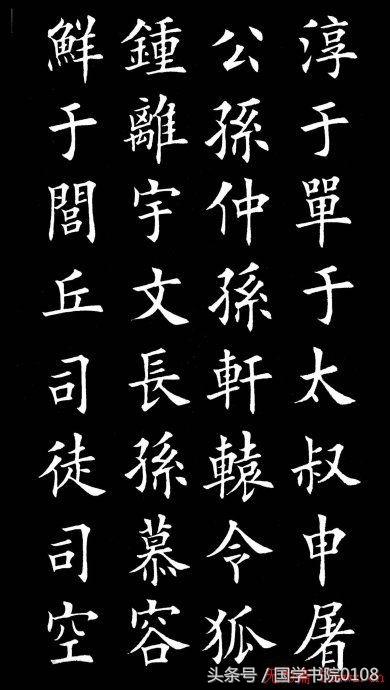 淳于單于太叔申屠
公孫仲孫軒轅令狐
鍾離宇文長孫慕容
鮮于閭丘司徒司空
头条号／国学书院0108